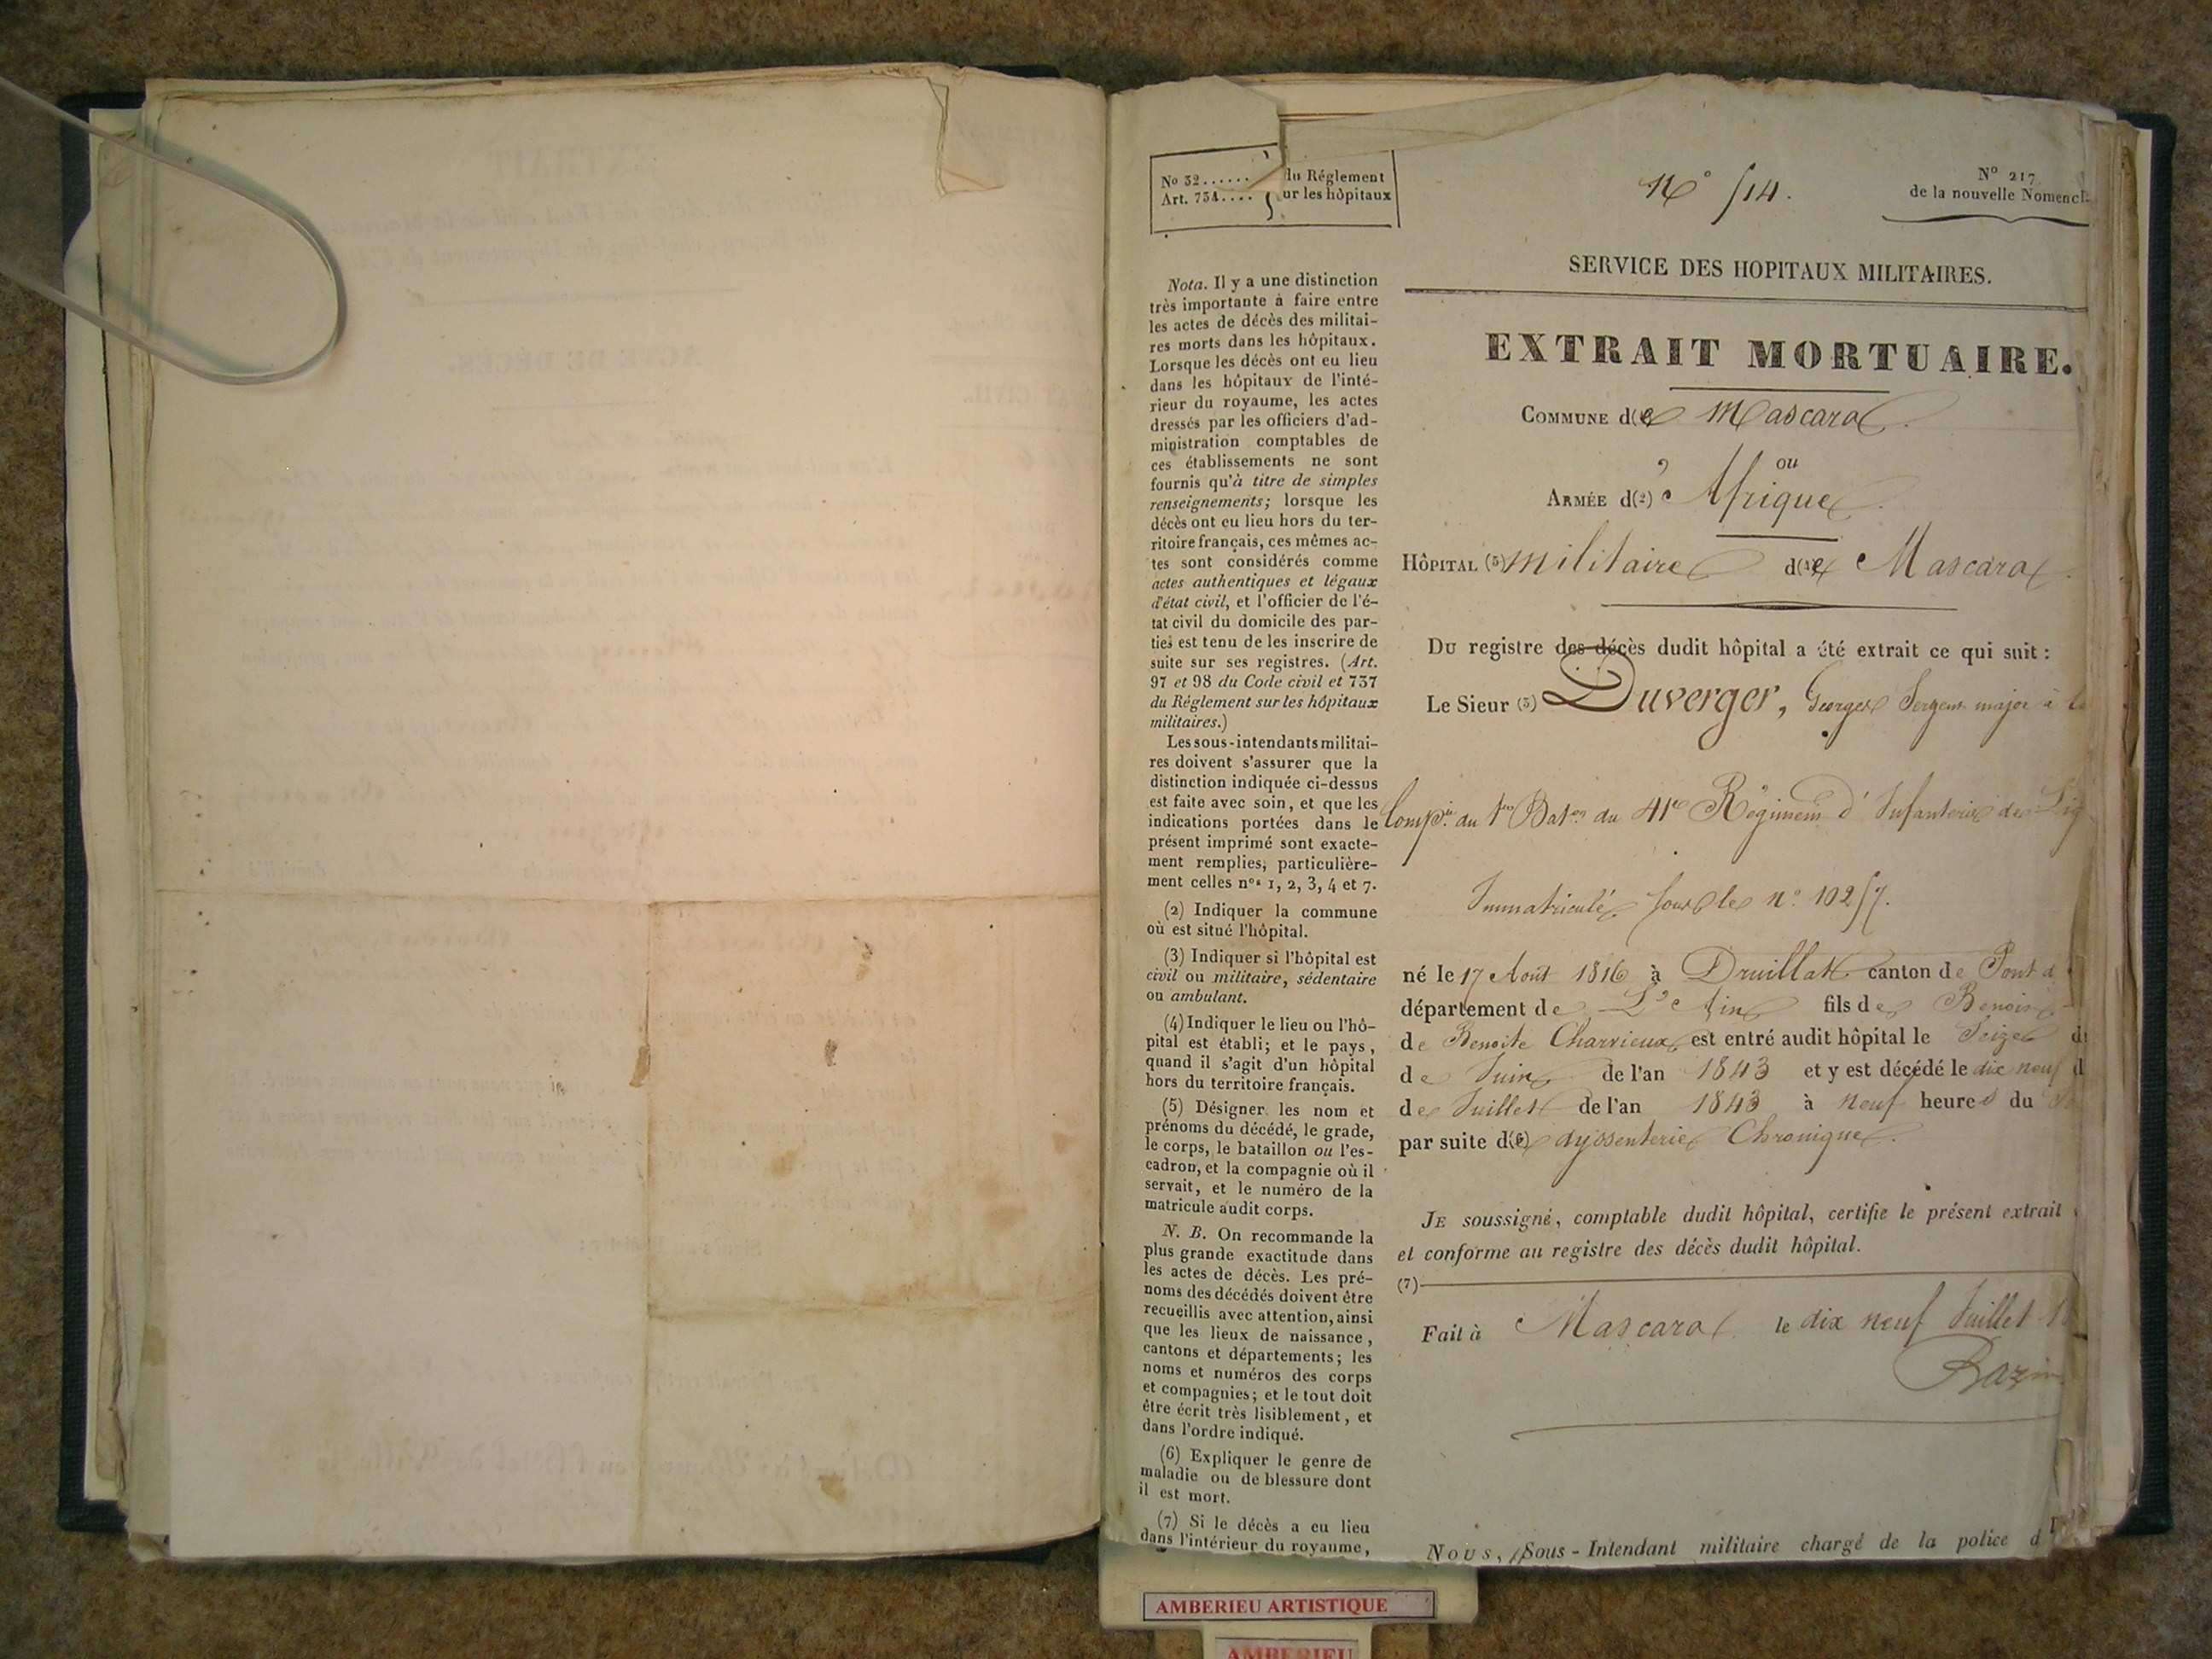 No 32...... du Réglement
Art. 734.... sur les hôpitaux
Nº 514.
Nº 217
de la nouvelle Nomencl
SERVICE DES HOPITAUX MILITAIRES.
EXTRAIT MORTUAIRE.
COMMUNE de Mascara.
ou
ARMÉE d(2) Afrique.
HÔPITAL (3) militaire de Mascara.
Du registre des décès dudit hôpital a été extrait ce qui suit :
Le Sieur (5) Duverger, Georges Sergent major à la
Comp.ie du 1er Bat.on du 41e Régiment d'Infanterie de Lig
Immatriculé sous le nº 10257.
né le 17 Août 1816 à Druillat canton de Pont d
département de L'Ain fils de Benoit
de Benoite Charvieux est entré audit hôpital le Seize d
de Juin de l'an 1843 et y est décédé le dix neuf d
de Juillet de l'an 1843 à neuf heures du
par suite d(6) dyssenterie Chronique.
JE soussigné, comptable dudit hôpital, certifie le présent extrait
et conforme au registre des décès dudit hôpital.
(7)
Fait à Mascara le dix neuf Juillet 18
Bazin
NOUS, Sous-Intendant militaire chargé de la police d
Nota. Il y a une distinction
très importante à faire entre
les actes de décès des militai-
res morts dans les hôpitaux.
Lorsque les décès ont eu lieu
dans les hôpitaux de l'inté-
rieur du royaume, les actes
dressés par les officiers d'ad-
ministration comptables de
ces établissements ne sont
fournis qu'à titre de simples
renseignements; lorsque les
décès ont eu lieu hors du ter-
ritoire français, ces mêmes ac-
tes sont considérés comme
actes authentiques et légaux
d'état civil, et l'officier de l'é-
tat civil du domicile des par-
ties est tenu de les inscrire de
suite sur ses registres. (Art.
97 et 98 du Code civil et 737
du Réglement sur les hôpitaux
militaires.)
Les sous-intendants militai-
res doivent s'assurer que la
distinction indiquée ci-dessus
est faite avec soin, et que les
indications portées dans le
présent imprimé sont exacte-
ment remplies, particulière-
ment celles nos 1, 2, 3, 4 et 7.
(2) Indiquer la commune
où est situé l'hôpital.
(3) Indiquer si l'hôpital est
civil ou militaire, sédentaire
ou ambulant.
(4) Indiquer le lieu ou l'hô-
pital est établi; et le pays,
quand il s'agit d'un hôpital
hors du territoire français.
(5) Désigner les nom et
prénoms du décédé, le grade,
le corps, le bataillon ou l'es-
cadron, et la compagnie où il
servait, et le numéro de la
matricule audit corps.
N. B. On recommande la
plus grande exactitude dans
les actes de décès. Les pré-
noms des décédés doivent être
recueillis avec attention, ainsi
que les lieux de naissance,
cantons et départements; les
noms et numéros des corps
et compagnies; et le tout doit
être écrit très lisiblement, et
dans l'ordre indiqué.
(6) Expliquer le genre de
maladie ou de blessure dont
il est mort.
(7) Si le décès a eu lieu
dans l'intérieur du royaume,
AMBERIEU ARTISTIQUE
AMBERIEU